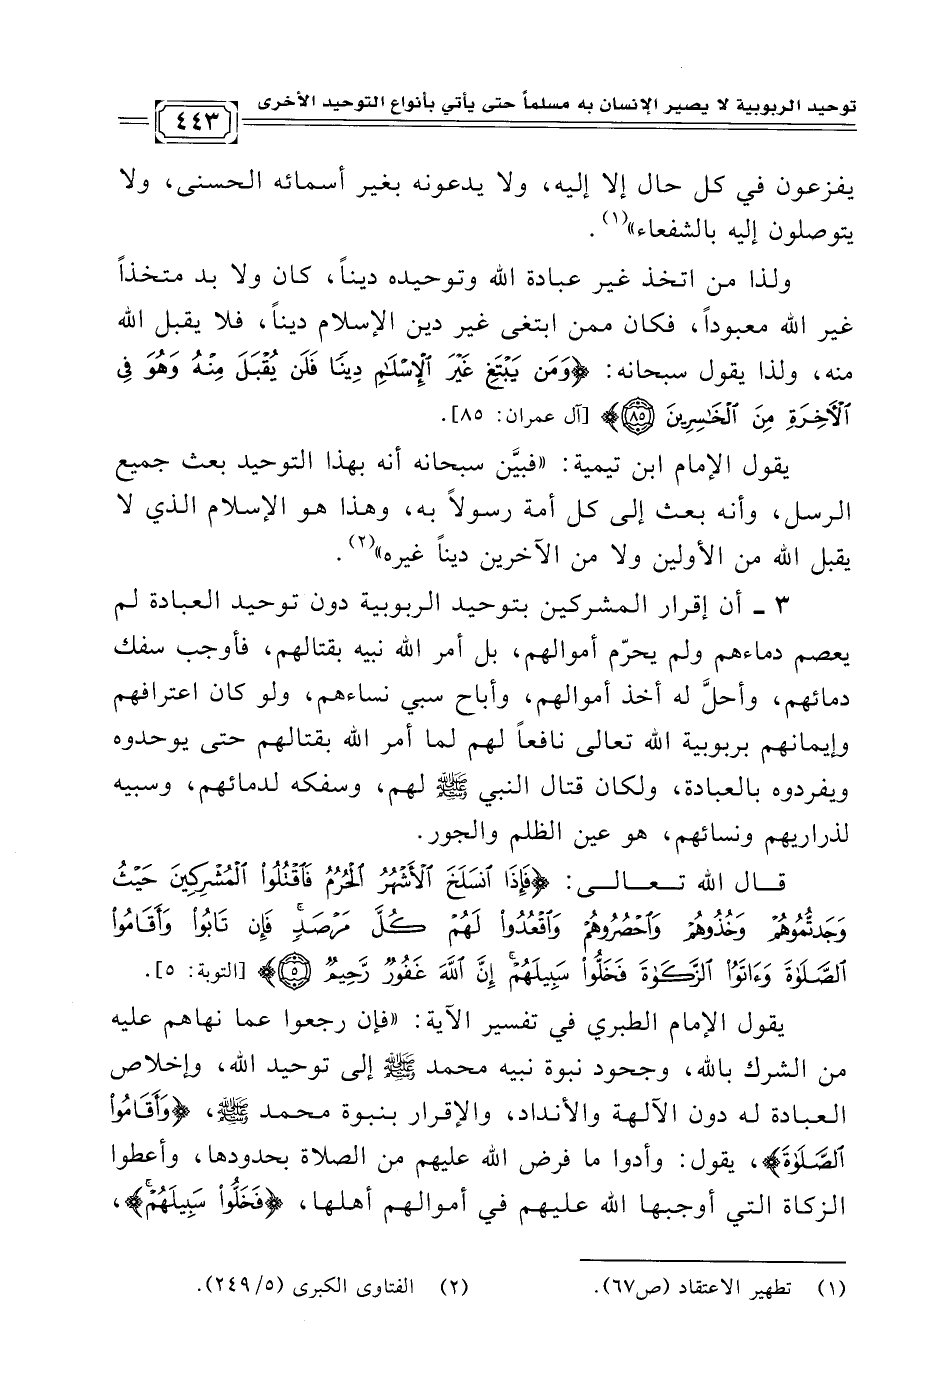 توحيد الربوبية لا يصير الإنسان به مسلماً حتى يأتي بأنواع التوحيد الأخرى
٤٤٣
يفزعون في كل حال إلا إليه، ولا يدعونه بغير أسمائه الحسنى، ولا
يتوصلون إليه بالشفعاء»(١).
ولذا من اتخذ غير عبادة الله وتوحيده ديناً، كان ولا بد متخذاً
غير الله معبوداً، فكان ممن ابتغى غير دين الإسلام ديناً، فلا يقبل الله
منه، ولذا يقول سبحانه: ﴿وَمَن يَبْتَغِ غَيْرَ ٱلْإِسْلَٰمِ دِينًا فَلَن يُقْبَلَ مِنْهُ وَهُوَ فِى
ٱلْأَخِرَةِ مِنَ ٱلْخَٰسِرِينَ ٨٥﴾ [آل عمران: ٨٥].
يقول الإمام ابن تيمية: «فبيَّن سبحانه أنه بهذا التوحيد بعث جميع
الرسل، وأنه بعث إلى كل أمة رسولاً به، وهذا هو الإسلام الذي لا
يقبل الله من الأولين ولا من الآخرين ديناً غيره»(٢).
٣ ـ أن إقرار المشركين بتوحيد الربوبية دون توحيد العبادة لم
يعصم دماءهم ولم يحرّم أموالهم، بل أمر الله نبيه بقتالهم، فأوجب سفك
دمائهم، وأحلَّ له أخذ أموالهم، وأباح سبي نساءهم، ولو كان اعترافهم
وإيمانهم بربوبية الله تعالى نافعاً لهم لما أمر الله بقتالهم حتى يوحدوه
ويفردوه بالعبادة، ولكان قتال النبي ﷺ لهم، وسفكه لدمائهم، وسبيه
لذراريهم ونسائهم، هو عين الظلم والجور.
قـال الله تـعـالـى: ﴿فَإِذَا ٱنسَلَخَ ٱلْأَشْهُرُ ٱلْحُرُمُ فَٱقْتُلُوا۟ ٱلْمُشْرِكِينَ حَيْثُ
وَجَدتُّمُوهُمْ وَخُذُوهُمْ وَٱحْصُرُوهُمْ وَٱقْعُدُوا۟ لَهُمْ كُلَّ مَرْصَدٍۚ فَإِن تَابُوا۟ وَأَقَامُوا۟
ٱلصَّلَوٰةَ وَءَاتَوُا۟ ٱلزَّكَوٰةَ فَخَلُّوا۟ سَبِيلَهُمْۚ إِنَّ ٱللَّهَ غَفُورٌ رَّحِيمٌ ٥﴾ [التوبة: ٥].
يقول الإمام الطبري في تفسير الآية: «فإن رجعوا عما نهاهم عليه
من الشرك بالله، وجحود نبوة نبيه محمد ﷺ إلى توحيد الله، وإخلاص
العبادة له دون الآلهة والأنداد، والإقرار بنبوة محمد ﷺ، ﴿وَأَقَامُوا۟
ٱلصَّلَوٰةَ﴾، يقول: وأدوا ما فرض الله عليهم من الصلاة بحدودها، وأعطوا
الزكاة التي أوجبها الله عليهم في أموالهم أهلها، ﴿فَخَلُّوا۟ سَبِيلَهُمْۚ﴾،
(١) تطهير الاعتقاد (ص٦٧).
(٢) الفتاوى الكبرى (٢٤٩/٥).